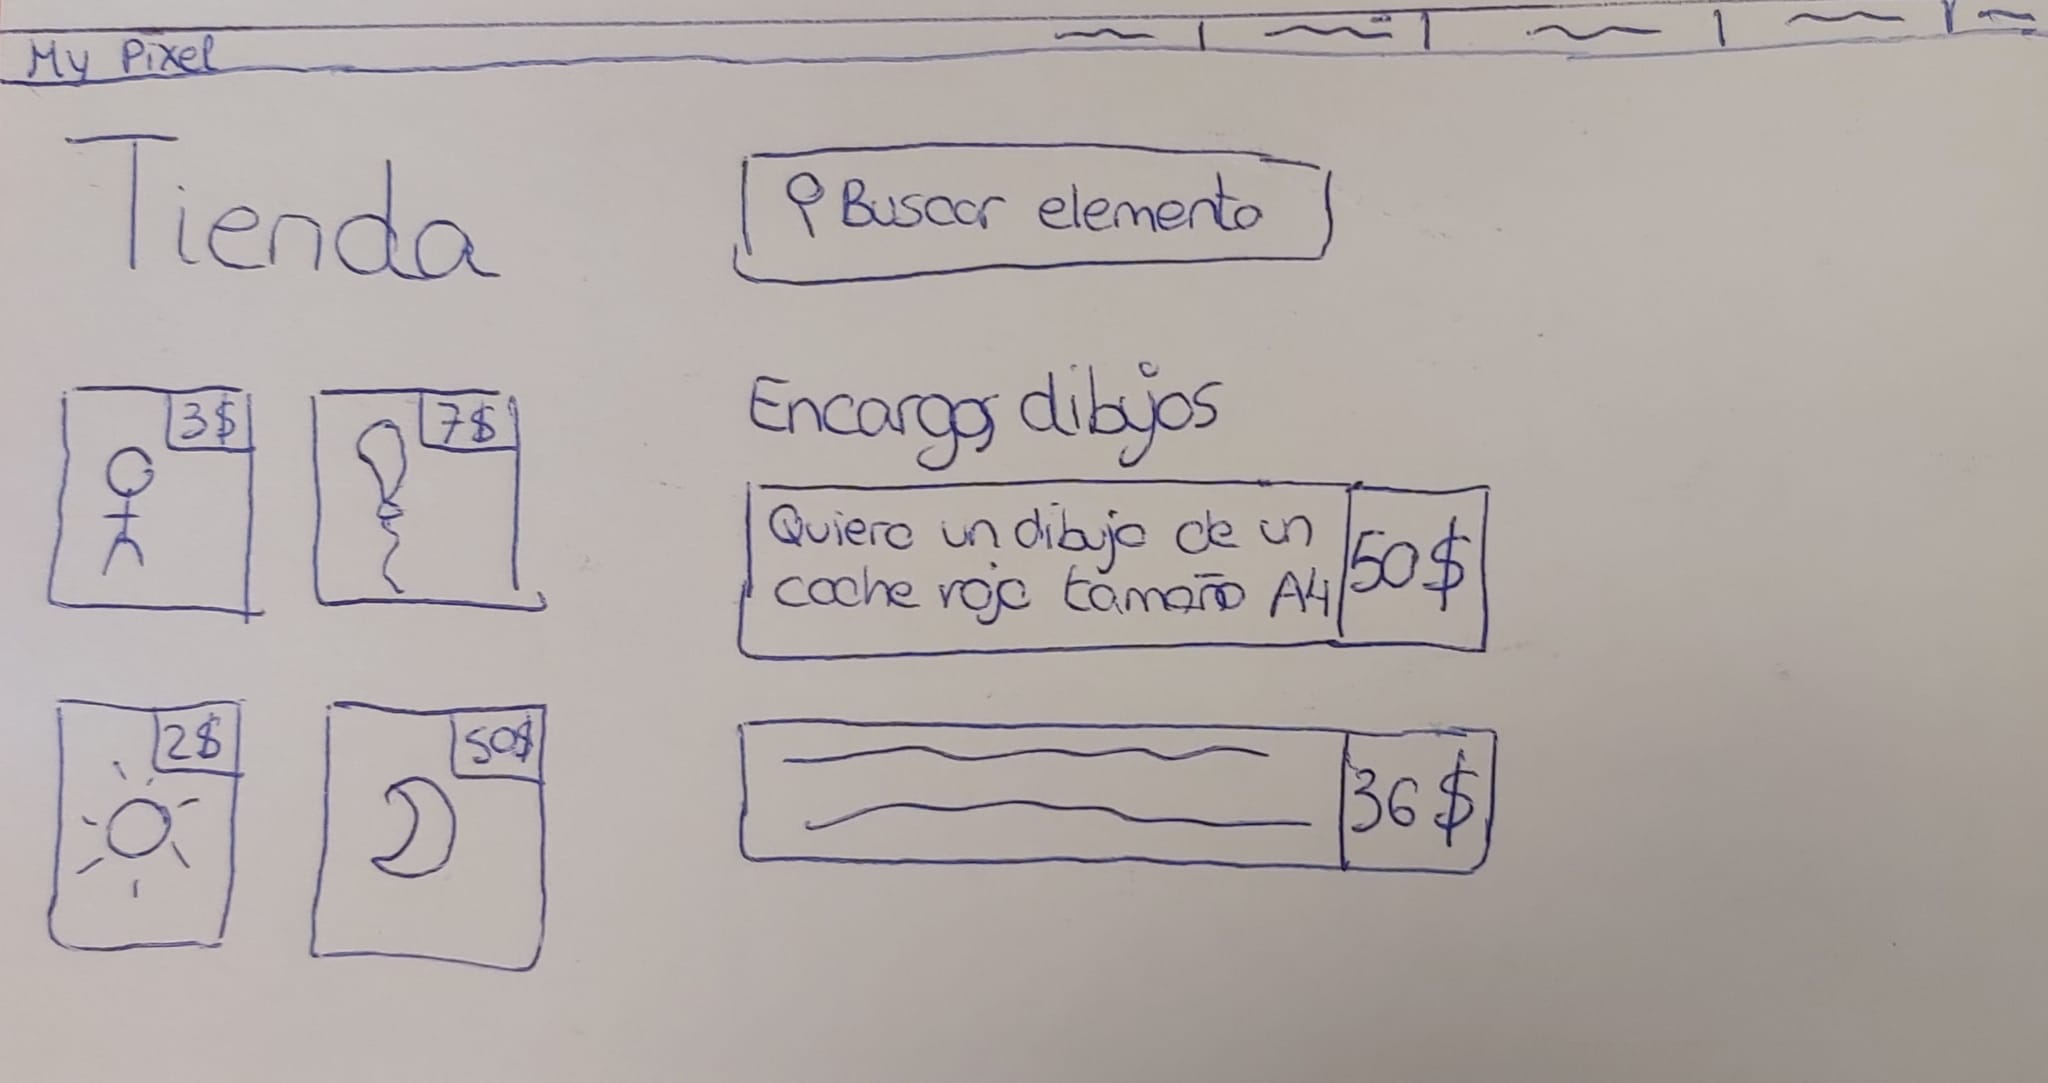 My Pixel
Tienda
Buscar elemento
3$
7$
Encargos dibujos
Quiero un dibujo de un
coche rojo tamaño A4
50$
2$
50$
36$